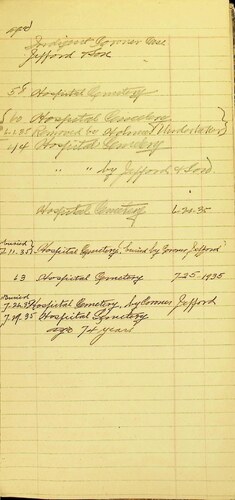 age
Indigent Coroner Case
Jefford & Son
58 Hospital Cemetery
60 Hospital Cemetery
Removed by Holmes (Undertaker)
44 Hospital Cemetery
" " by Jefford & Son.
Hospital Cemetery 6-21-35
buried Hospital Cemetery, buried by Coroner Jefford
63 Hospital Cemetery 7-25-1935
Buried
7-22-35 Hospital Cemetery, by Coroner Jefford
7-19-35 Hospital Cemetery
age 74 years